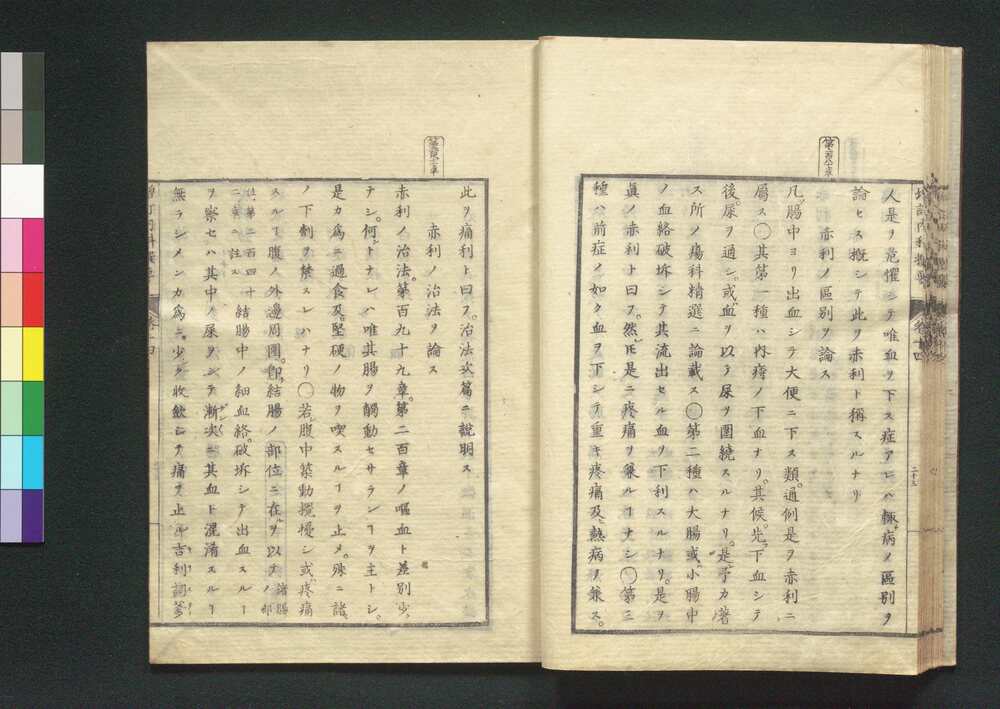 人是ヲ危懼シテ唯血ヲ下ス症アレハ輙病ノ區別ヲ
論セス概シテ此ヲ赤利ト稱スルナリ
赤利ノ區別ヲ論ス
凡腸中ヨリ出血シテ大便ニ下ス類。通例是ヲ赤利ニ
屬ス〇其第一種ハ內痔ノ下血ナリ。其候。先下血シテ
後。尿ヲ通シ。或血ヲ以テ尿ヲ圍繞スルナリ。是予カ著
ス所ノ瘍科精選ニ論載ス〇第二種ハ大腸或小腸中
ノ血絡破坼シテ其流出セル血ヲ下利スルナリ。是ヲ
眞ノ赤利ト曰フ。然𪜈是ニ疼痛ヲ兼ルヿナシ〇第三
種ハ前症ノ如ク血ヲ下シテ重キ疼痛及熱病ヲ兼ス。
二十三
此ヲ痛利ト曰フ。治法次篇ニ說明ス
赤利ノ治法ヲ論ス
赤利ノ治法。第百九十九章。第二百章ノ嘔血ト差別少
ナシ。何トナレハ唯其腸ヲ觸動セサランヿヲ主トシ。
是カ爲ニ過食及堅硬ノ物ヲ喫スルヿヲ止メ。殊ニ諸
ノ下劑ヲ禁スレハナリ〇若腹中築動攪擾シ或疼痛
スルヿ腹ノ外邊周圍。卽結腸ノ部位ニ在ヲ以テ諸腸ノ部
位。第二百四十二章ヘ註ス結腸中ノ細血絡。破坼シテ出血スルヿ
ヲ察セハ其中ノ尿ヲシテ漸次ニ其血ト混淆スルヿ
無ラシメンカ爲ニ。少ク收歛シテ痛ヲ止ル吉利詞爹